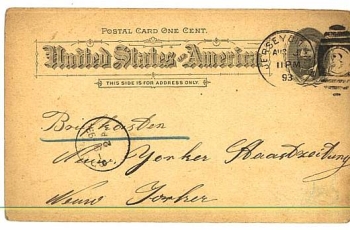 POSTAL CARD ONE CENT.
United States of America
THIS SIDE IS FOR ADDRESS ONLY.
JERSEY
AUG
11 PM
93
Briefkasten
New Yorker Staatszeitung
New Yorker